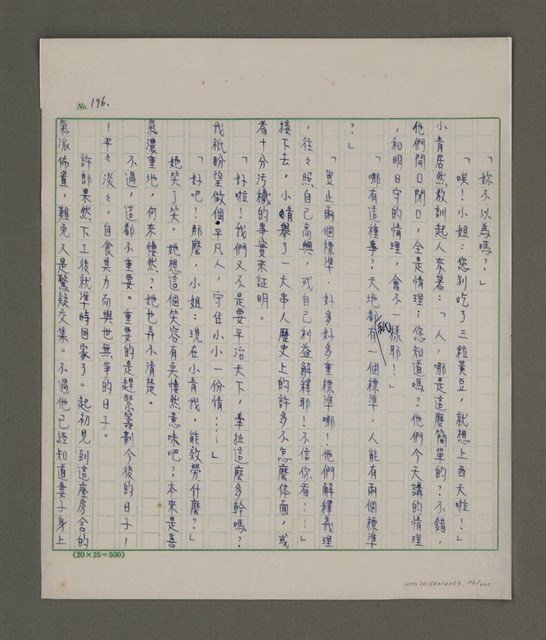 No. 196.
「妳不以為嗎？」
「唉！小姐：您別吃了三粒黃豆，就想上西天啦！」
小青居然教訓起人來著：「人，哪是這麼簡單的？不錯，
他們開口閉口，全是情理；您知道嗎？他們今天講的情理
，和明日守的情理，會不一樣耶！」
「哪有這種事？天地都祇有一個標準，人能有兩個標準
？」
「豈止兩個標準，好多好多重標準哪！他們解釋義理
，往々照自己高興，或自己利益解釋耶！不信你看⋯⋯」
接下去，小青舉了一大串人歷史上的許多不怎麼体面，或
者十分污穢的事實來証明。
「好啦！我們又不是要平治天下，牽扯這麼多幹嗎？
我祇盼望做個平凡人，守住小小一份情⋯⋯」
「好吧！那麼，小姐：現在小青我，能效勞什麼？」
她笑了笑。她想這個笑容有奌悽然意味吧？本來是喜
氣濃重地，何來悽然？她也弄不清楚。
不過，這都不重要。重要的是趕緊籌劃今後的日子！
！平々淡々，自食其力而與世無爭的日子。
許郎果然下工後就準時回家了。起初見到這座房舍的
氣派佈置，難免又是驚疑交集。不過他已經知道妻子身上
(20×25=500)